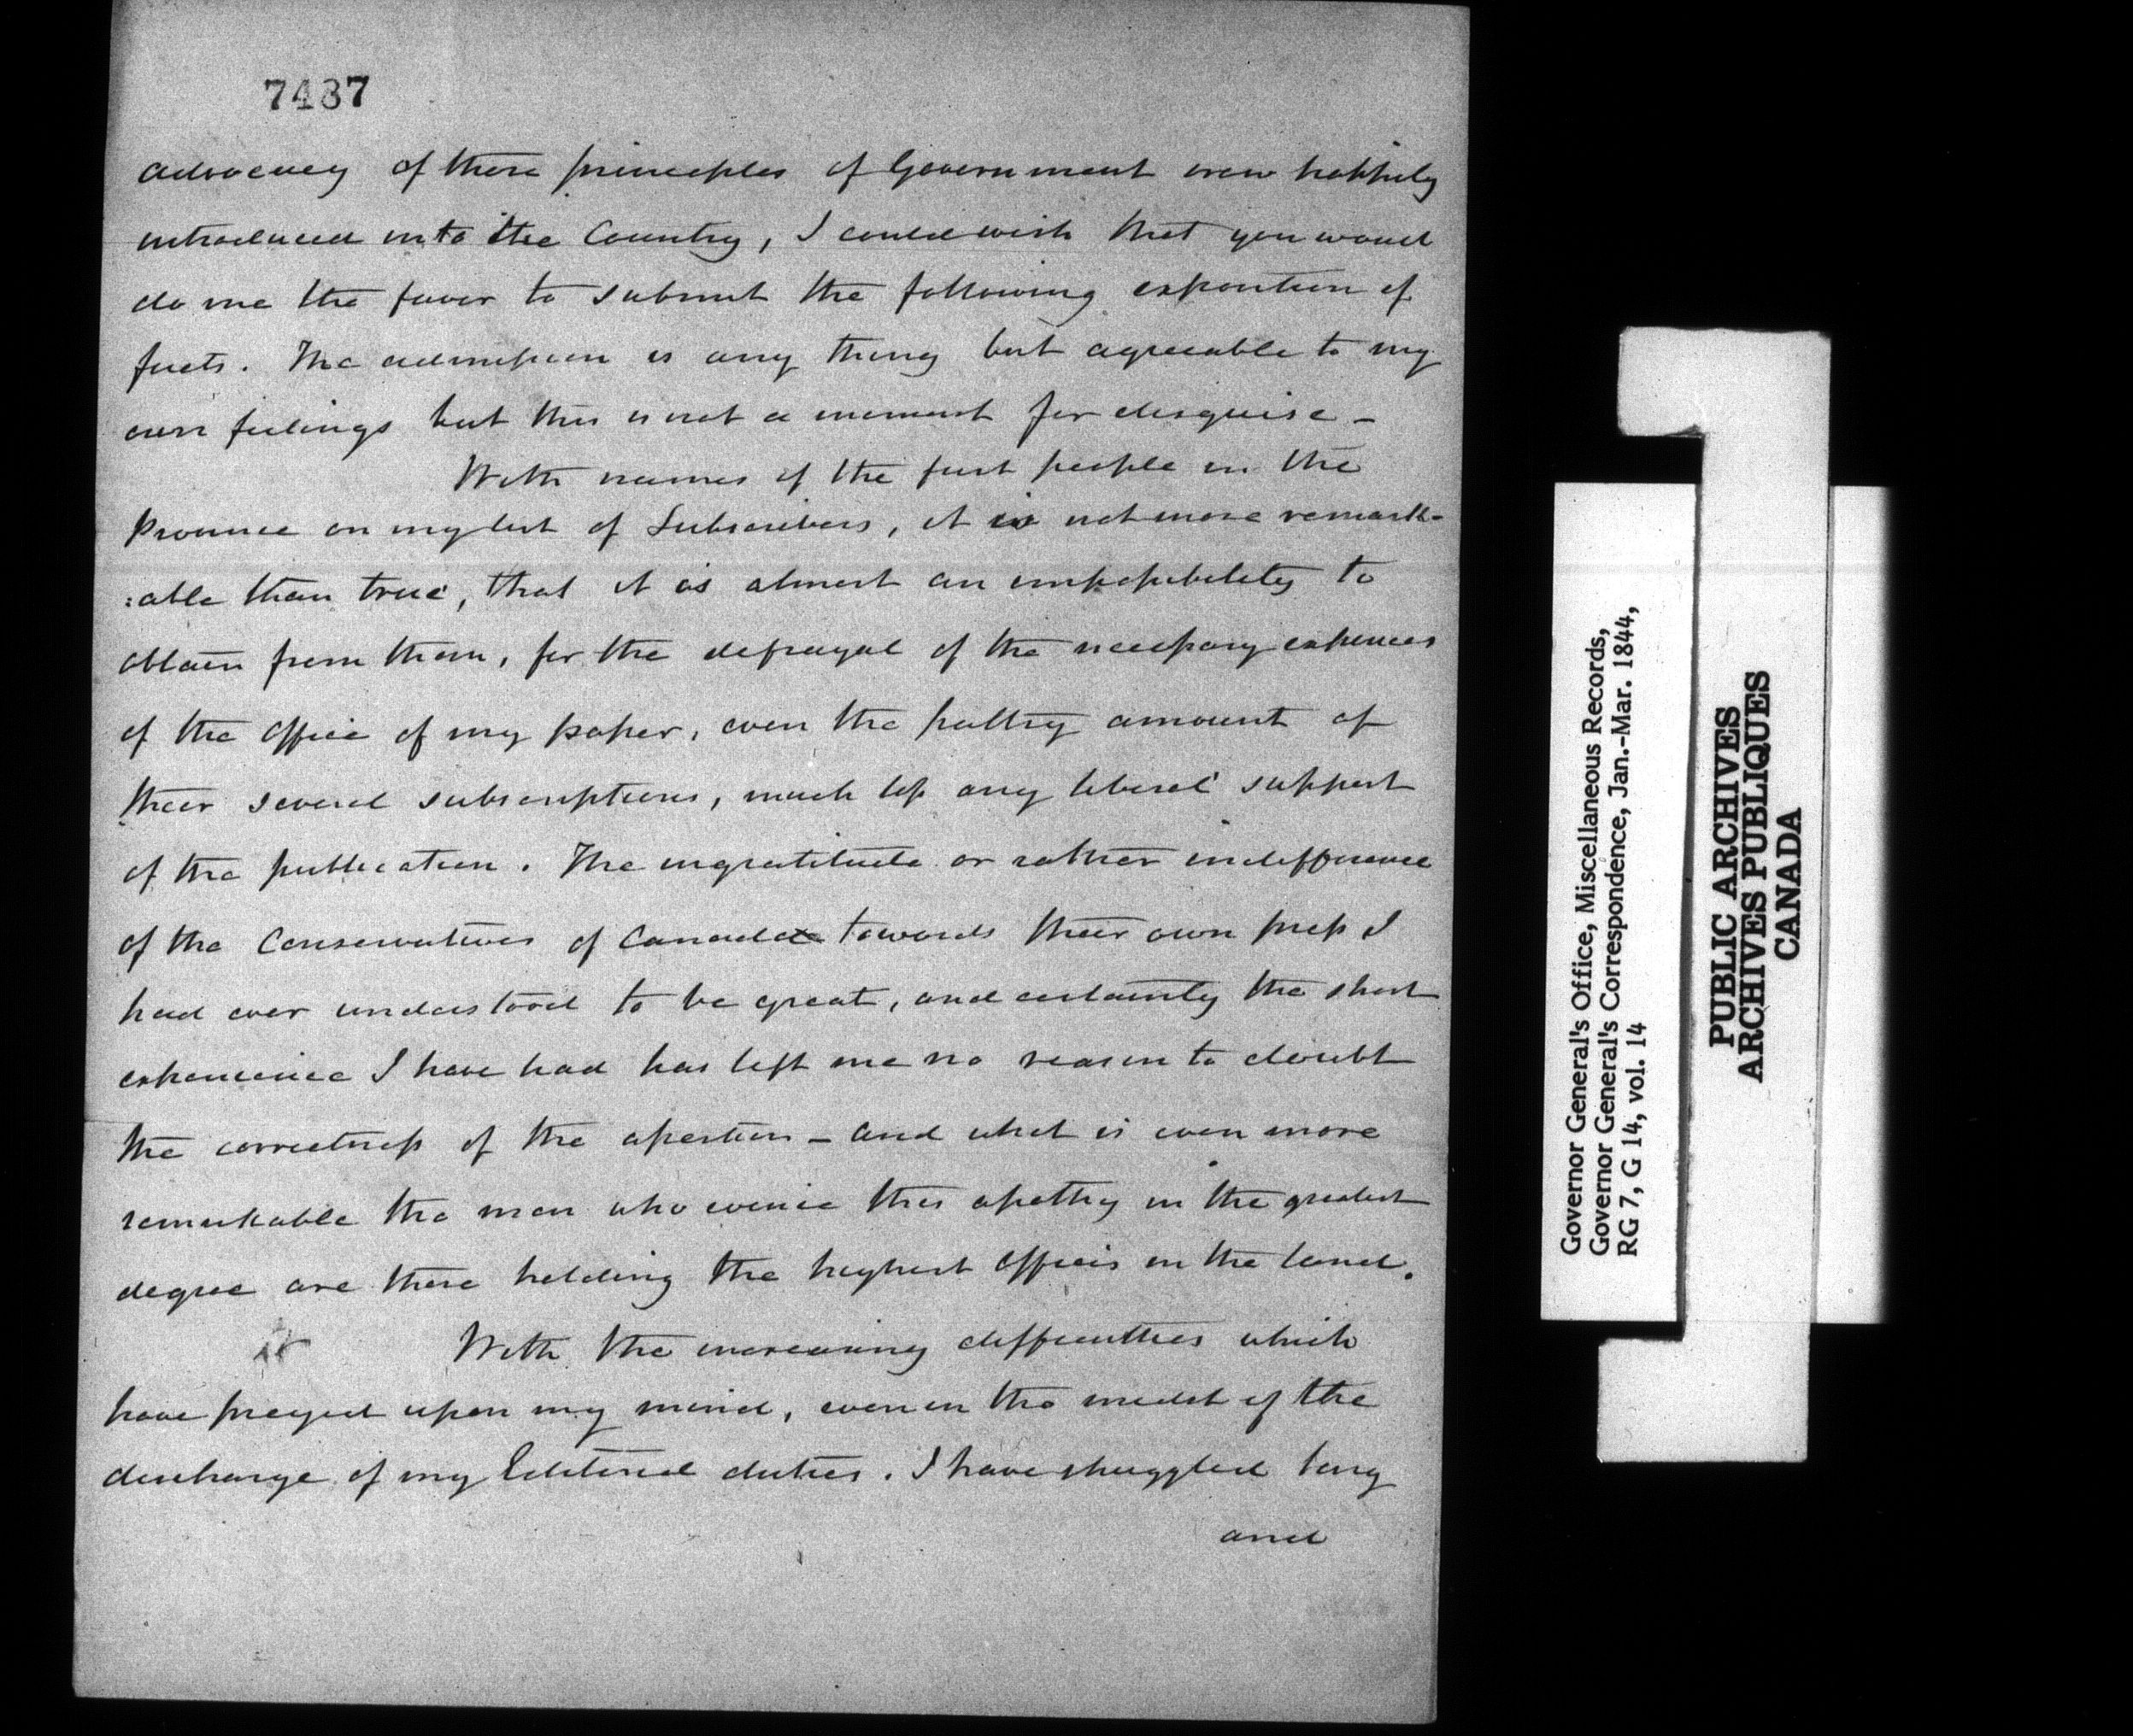 7487
advocacy of those principles of Government now happily
introduced into the Country, I could wish that you would
do me the favor to submit the following exposition of
facts. The admission is any thing but agreeable to my
own feelings but this is not a moment for disguise –
With names of the first people in the
Province on my list of Subscribers, it is not more remark-
:able than true, that it is almost an impossibility to
obtain from them, for the defrayal of the necessary expences
of the office of my paper, even the paltry amount of
their several subscriptions, much less any liberal support
of the publication. The ingratitude or rather indifference
of the Conservatives of Canada towards their own press I
had ever understood to be great, and certainly the short
experience I have had has left me no reason to doubt
the correctness of the assertion – and what is even more
remarkable the men who evince this apathy in the greatest
degree are those holding the highest offices in the land.
With the increasing difficulties which
have preyed upon my mind, even in the midst of the
discharge of my Editorial duties. I have struggled long
and
Governor General's Office, Miscellaneous Records,
Governor General's Correspondence, Jan.-Mar. 1844,
RG 7, G 14, vol. 14
PUBLIC ARCHIVES
ARCHIVES PUBLIQUES
CANADA